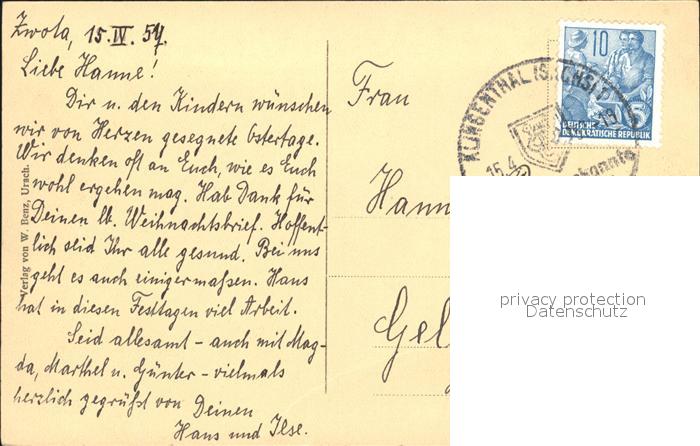 Zwota, 15.IV.54.
Liebe Hanne!
Dir u. den Kindern wünschen
wir von Herzen gesegnete Ostertage.
Wir denken oft an Euch, wie es Euch
wohl ergehen mag. Hab Dank für
Deinen lb. Weihnachtsbrief. Hoffent-
lich seid Ihr alle gesund. Bei uns
geht es auch einigermaßen. Hans
hat in diesen Festtagen viel Arbeit.
Seid allesamt - auch mit Mag-
da, Marthel u. Günter - vielmals
herzlich gegrüßt von Deinen
Hans und Ilse.
Verlag von W. Benz, Urach.
Frau
Hann
Gel
10
DEUTSCHE
DEMOKRATISCHE REPUBLIK
KLINGENTHAL (SACHS)
15.4
privacy protection
Datenschutz